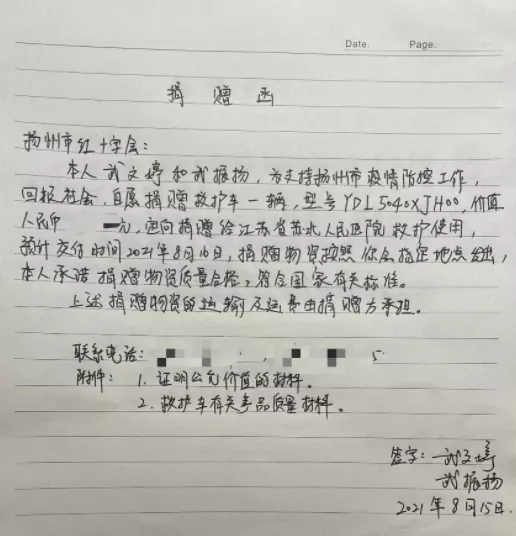 Date. Page.
捐赠函
扬州市红十字会:
本人武文婷和武振扬,为支持扬州市疫情防控工作,
回报社会,自愿捐赠救护车一辆,型号YDL5040XJH00,价值
人民币 元,定向捐赠给江苏省苏北人民医院救护使用,
预计交付时间2021年8月16日,捐赠物资按照你会指定地点给出,
本人承诺捐赠物资质量合格,符合国家有关标准。
上述捐赠物资的运输及运费由捐赠方承担。
联系电话: 5
附件:1.证明公允价值的材料。
2.救护车有关产品质量材料。
签字:武文婷
武振扬
2021年8月15日.